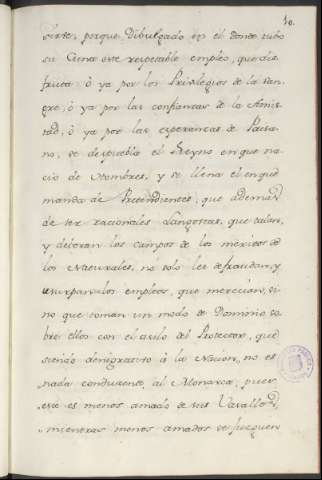 10.
serte, porque Dibulgado en el donde tubo
su Cuna este respetable empleo, que dis-
fruta ò ya por los Privilegios de la San-
gre, ò ya por las confianzas de la Amis-
tad, ò ya por las esperanzas de Paisa-
no, se despuebla el Reyno en que na-
cio de Hombres, y se llena el en que
manda de Pretendientes, que ademas
de ser racionales Langostas, que talan,
y deboran los campos de los meritos de
los Naturales, no solo les defraudan, y
usurpan los empleos, que merecian, si
no que toman un modo de Dominio so-
bre ellos con el asilo del Protector, que
siendo denigrativo à la Nacion, no es
nada conducente al Monarca, pues
este es menos amado de sus Vasallos,
mientras menos amados se juzguen